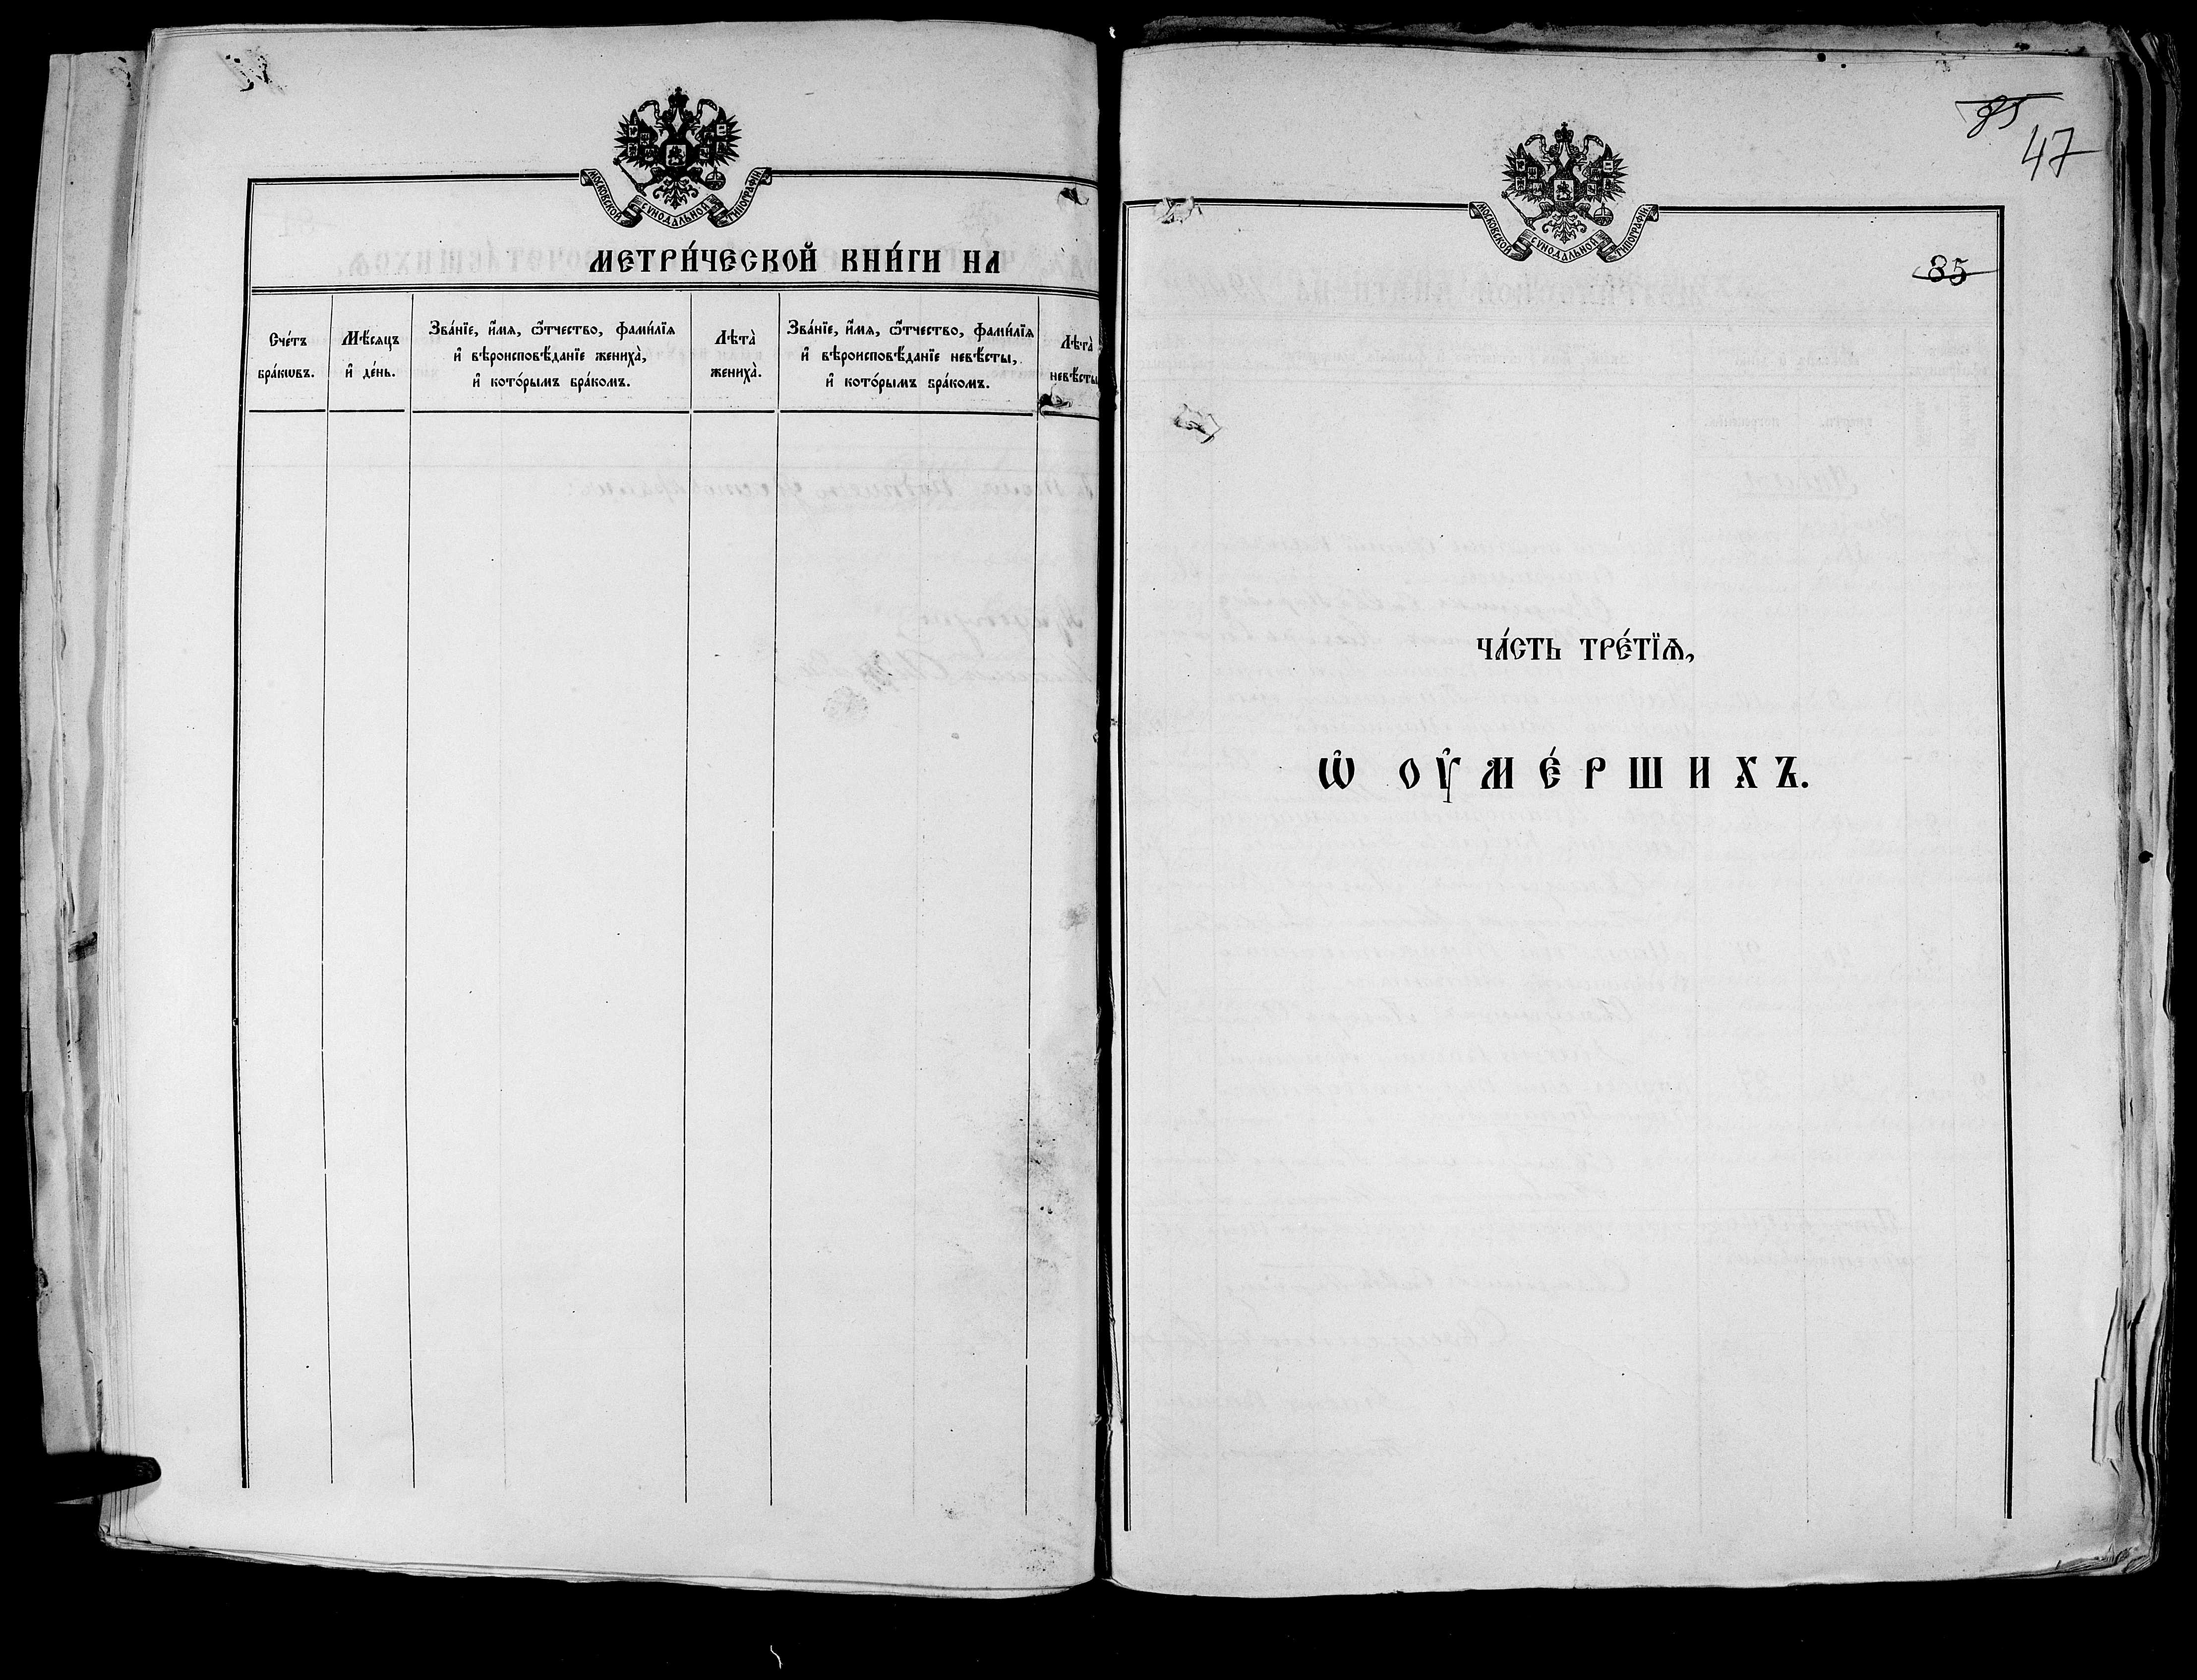 МОСКОВСКОЙ СѴНОДАЛЬНОЙ ТИПОГРАФІИ
МЕТРИ́ЧЕСКОЙ КНИ́ГИ НА
Сче́тъ бра́кѡвъ.
Мѣ́сяцъ и҆ де́нь.
Зва́нїе, и҆́мѧ, ѻ҆́тчество, фами́лїѧ
и҆ вѣроисповѣ́данїе женихà,
и҆ кото́рымъ бра́комъ.
Лѣтà женихà.
Зва́нїе, и҆́мѧ, ѻ҆́тчество, фами́лїѧ
и҆ вѣроисповѣ́данїе невѣ́сты,
и҆ кото́рымъ бра́комъ.
Лѣтà
невѣ́сты
85
47
МОСКОВСКОЙ СѴНОДАЛЬНОЙ ТИПОГРАФІИ
85
ЧА́СТЬ ТРЕ́ТЇѦ,
Ѡ҆ ОУ҆МЕ́РШИХЪ.